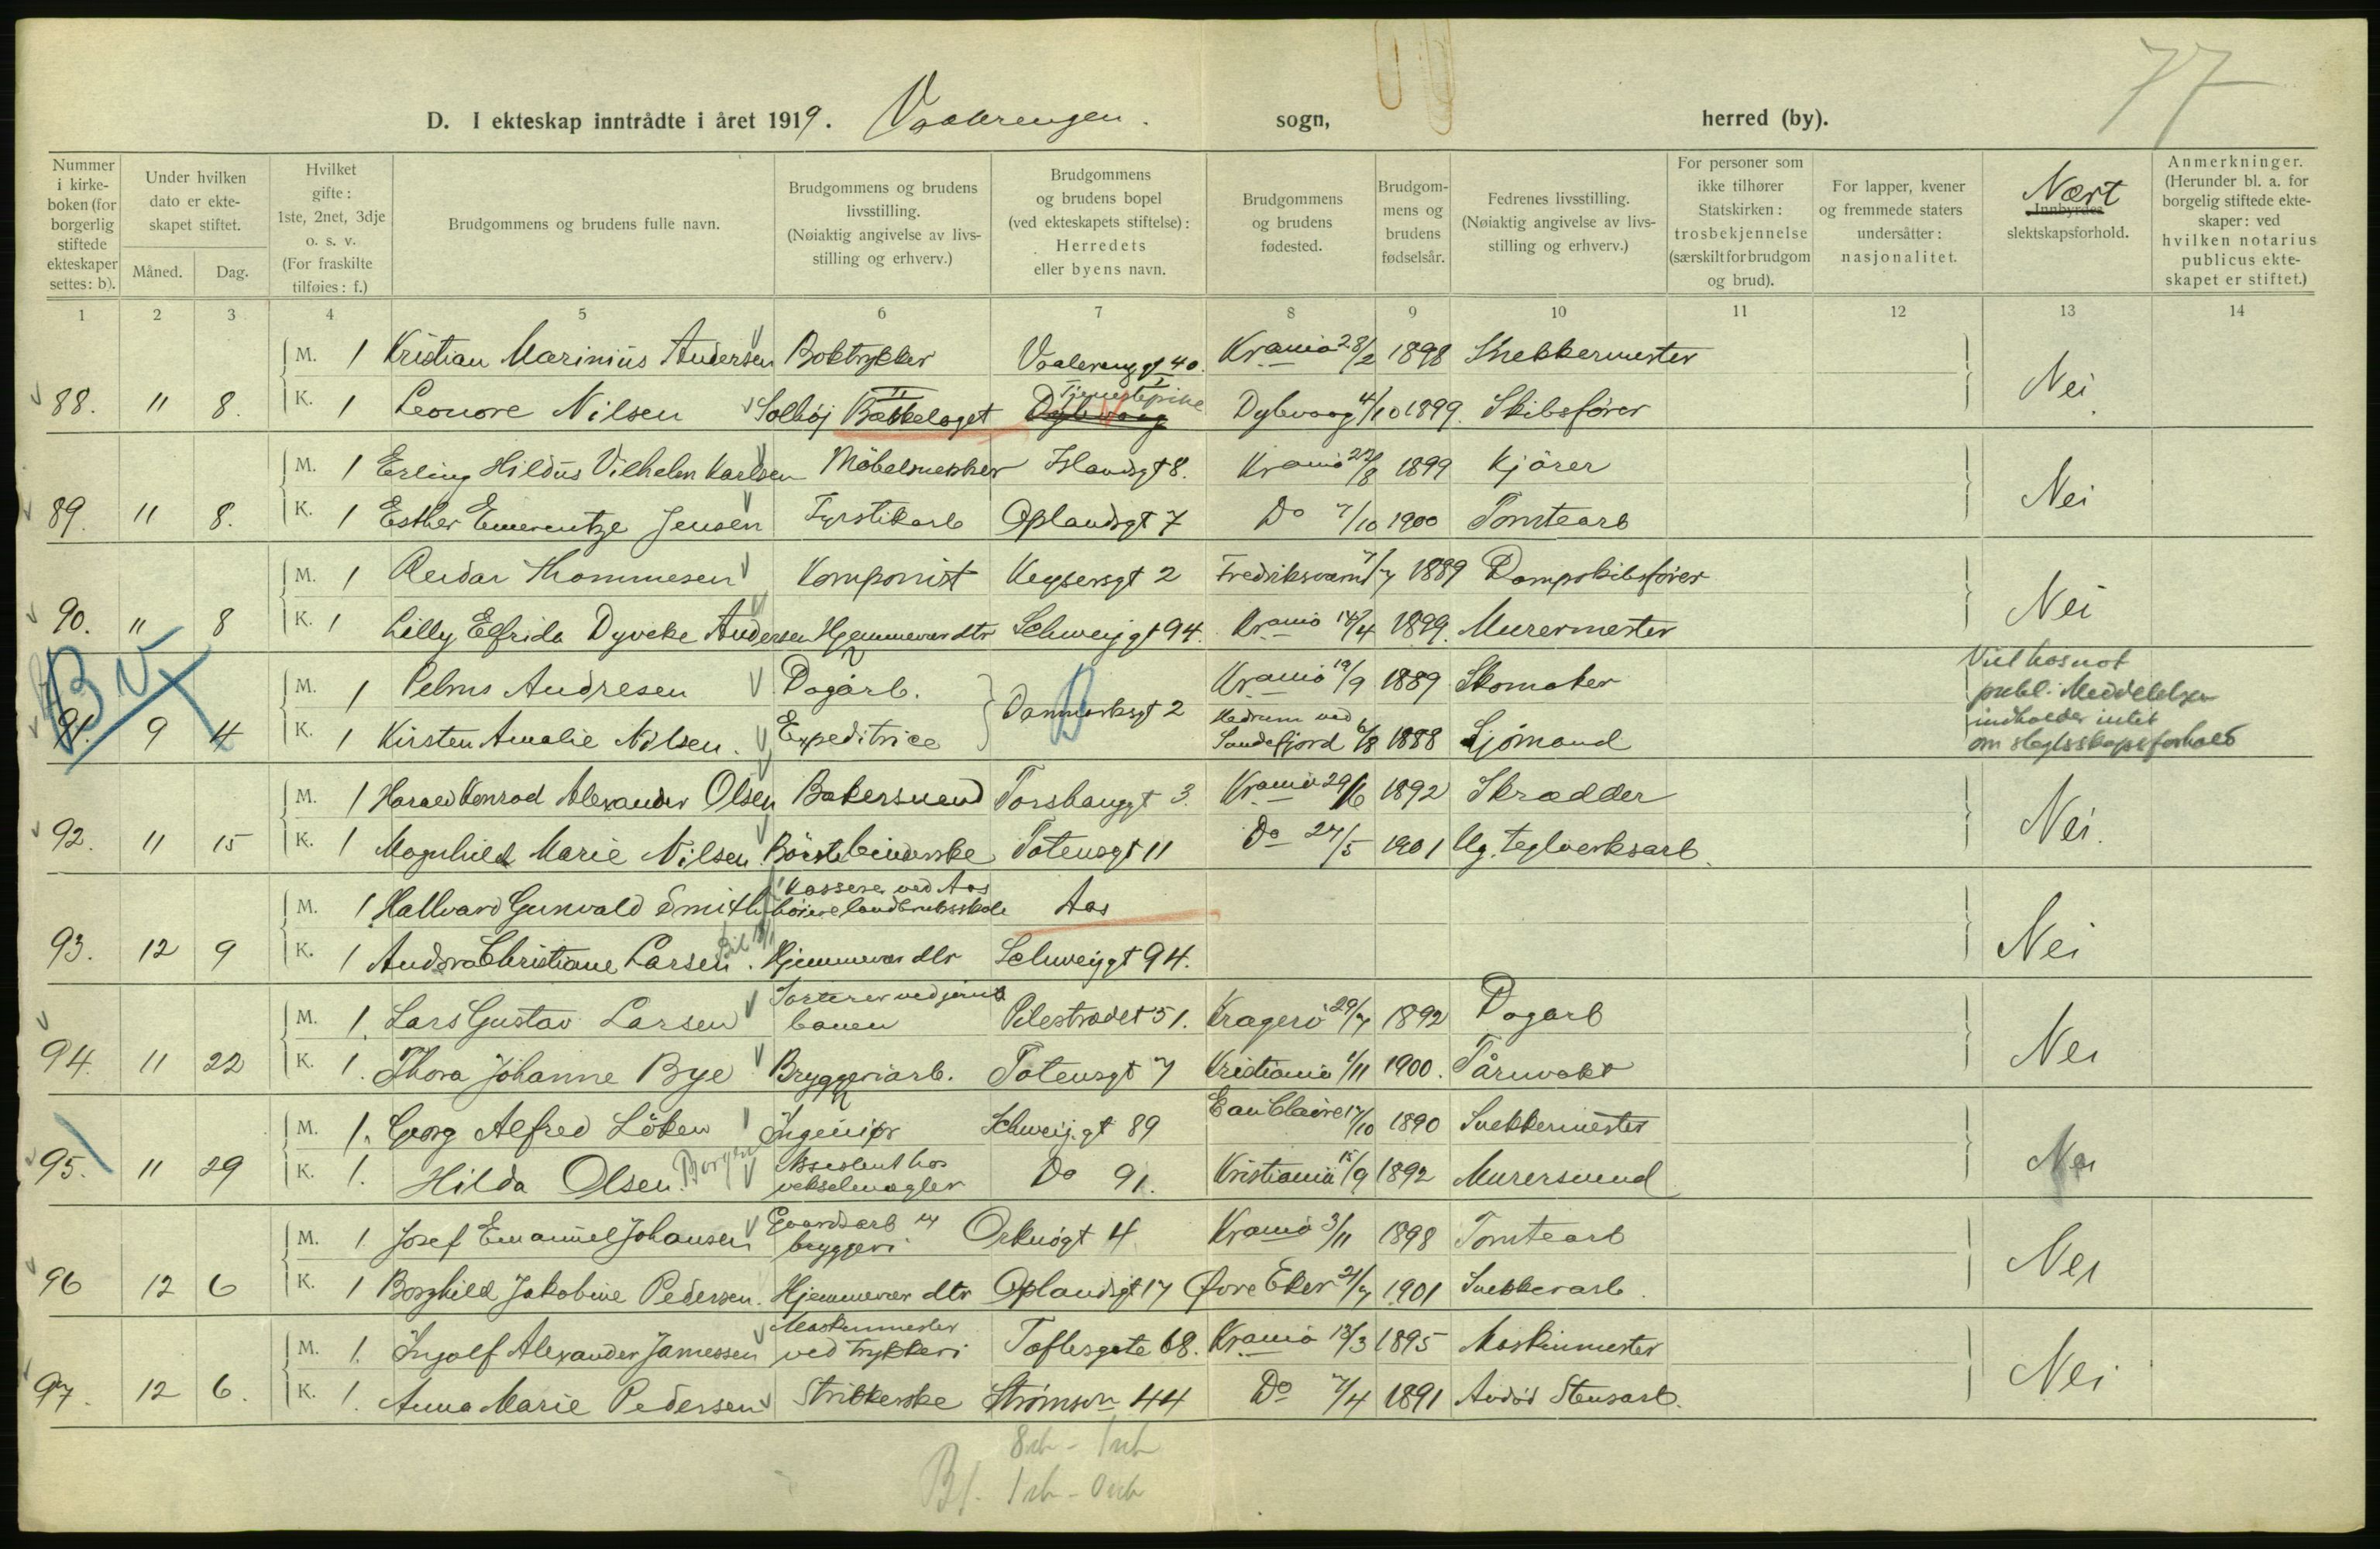 77
D. I ekteskap inntrådte i året 1919. Vaalerengen. sogn, herred (by).
Nummer i kirkeboken (for borgerlig stiftede ekteskaper settes: b).
Under hvilken dato er ekteskapet stiftet.
Måned. Dag.
Hvilket gifte: 1ste, 2net, 3dje o. s. v. (For fraskilte tilføies: f.)
Brudgommens og brudens fulle navn.
Brudgommens og brudens livsstilling. (Nøiaktig angivelse av livsstilling og erhverv.)
Brudgommens og brudens bopel (ved ekteskapets stiftelse): Herredets eller byens navn.
Brudgommens og brudens fødested.
Brudgommens og brudens fødselsår.
Fedrenes livsstilling. (Nøiaktig angivelse av livsstilling og erhverv.)
For personer som ikke tilhører Statskirken: trosbekjennelse (særskilt for brudgom og brud).
For lapper, kvener og fremmede staters undersåtter: nasjonalitet.
Nært Innbyrdes slektskapsforhold.
Anmerkninger. (Herunder bl. a. for borgelig stiftede ekteskaper: ved hvilken notarius publicus ekteskapet er stiftet.)
1 2 3 4 5 6 7 8 9 10 11 12 13 14
M. 1 Kristian Marinius Andersen Boktrykker Vaalerenggt 40. Kr.ania 28/2 1898 Snekkermester
88. 11 8. K. 1 Leonore Nilsen Solhøj Bækkelaget Tjenestepike Dybvaag Dybvaag 4/10 1899. Skibsfører Nei
M. 1 Erling Hildus Vilhelm Karlsen Möbelsnekker Islandsgt 8. Kr.ania 27/8 1899 Kjörer
89. 11 8. K. 1 Esther Emerentze Jensen Fyrstikarb Oplandsgt 7 Do 7/10 1900 Tomtearb Nei
M. 1 Reidar Thommesen Komponist Keysersgt 2 Fredriksværn 7/7 1889 Dampskibsfører
90. 11 8 K. 1 Lilly Elfrida Dyveke Andersen Hjemmevær dtr Schweiggt 94. Kr.ania 14/4 1899. Murermester Nei
M. 1 Pelms Andresen Dagarb. Danmarksgt 2 Kr.ania 19/9 1889 Skomaker
91. 9 4 K. 1 Kirsten Amalie Nilsen. Expeditrice Hedrum ved Sandefjord 6/8 1888 Sjömand
Viet hos not publ. Meddelelsen indholder intet om slegtsskapsforhold
M. 1 Harald Konrad Alexander Olsen Bakersvend Torshauggt 3. Kr.ania 29/6 1892 Skrædder
92. 11 15 K. 1 Magnhild Marie Nilsen Börstebinderske Totensgt 11 Do 27/5 1901 Ug. teglverksarb. Nei.
M. 1 Hallvard Gunvald Smith Kasserer ved Aas høiere landbruksskole Aas
93. 12 9 K. 1 Andora Christiane Larsen. Hjemmevær dtr Schweiggt 94. Nei
M. 1. Lars Gustav Larsen Sorterer ved jernbanen Pilestrædet 51. Kragerö 29/7 1892 Dagarb
94. 11 22 K. 1. Thora Johanne Bye Bryggeriarb. Totensgt 7 Kristiania 1/11 1900. Tårnvakt Nei
M. 1. Georg Alfred Löken Ingeniør Schweig.gt 89 Eau Claire 17/10 1890 Snekkermester
95. 11 29 K. 1. Hilda Olsen. Borgen Assistent hos vekselmægler Do 91. Kristiania 15/9 1892 Murersvend Nei
M. 1 Josef Emanuel Johansen Gaardsarb bryggeri Orknögt 4 Kr.ania 3/11 1898 Tomtearb
96 12 6 K. 1 Borghild Jakobine Pedersen. Hjemmevær dtr Oplandsgt 17 Øvre Eker 21/7 1901 Snekkerarb. Nei
M. 1. Ingolf Alexander Jamessen Maskinmester ved trykkeri Toftesgate 68. Kr.ania 13/3 1895 Maskinmester
97. 12 6. K. 1. Anna Marie Pedersen Strikkerske Strömsvn 44 Do 7/4 1891 Avdöd Stensarb. Nei